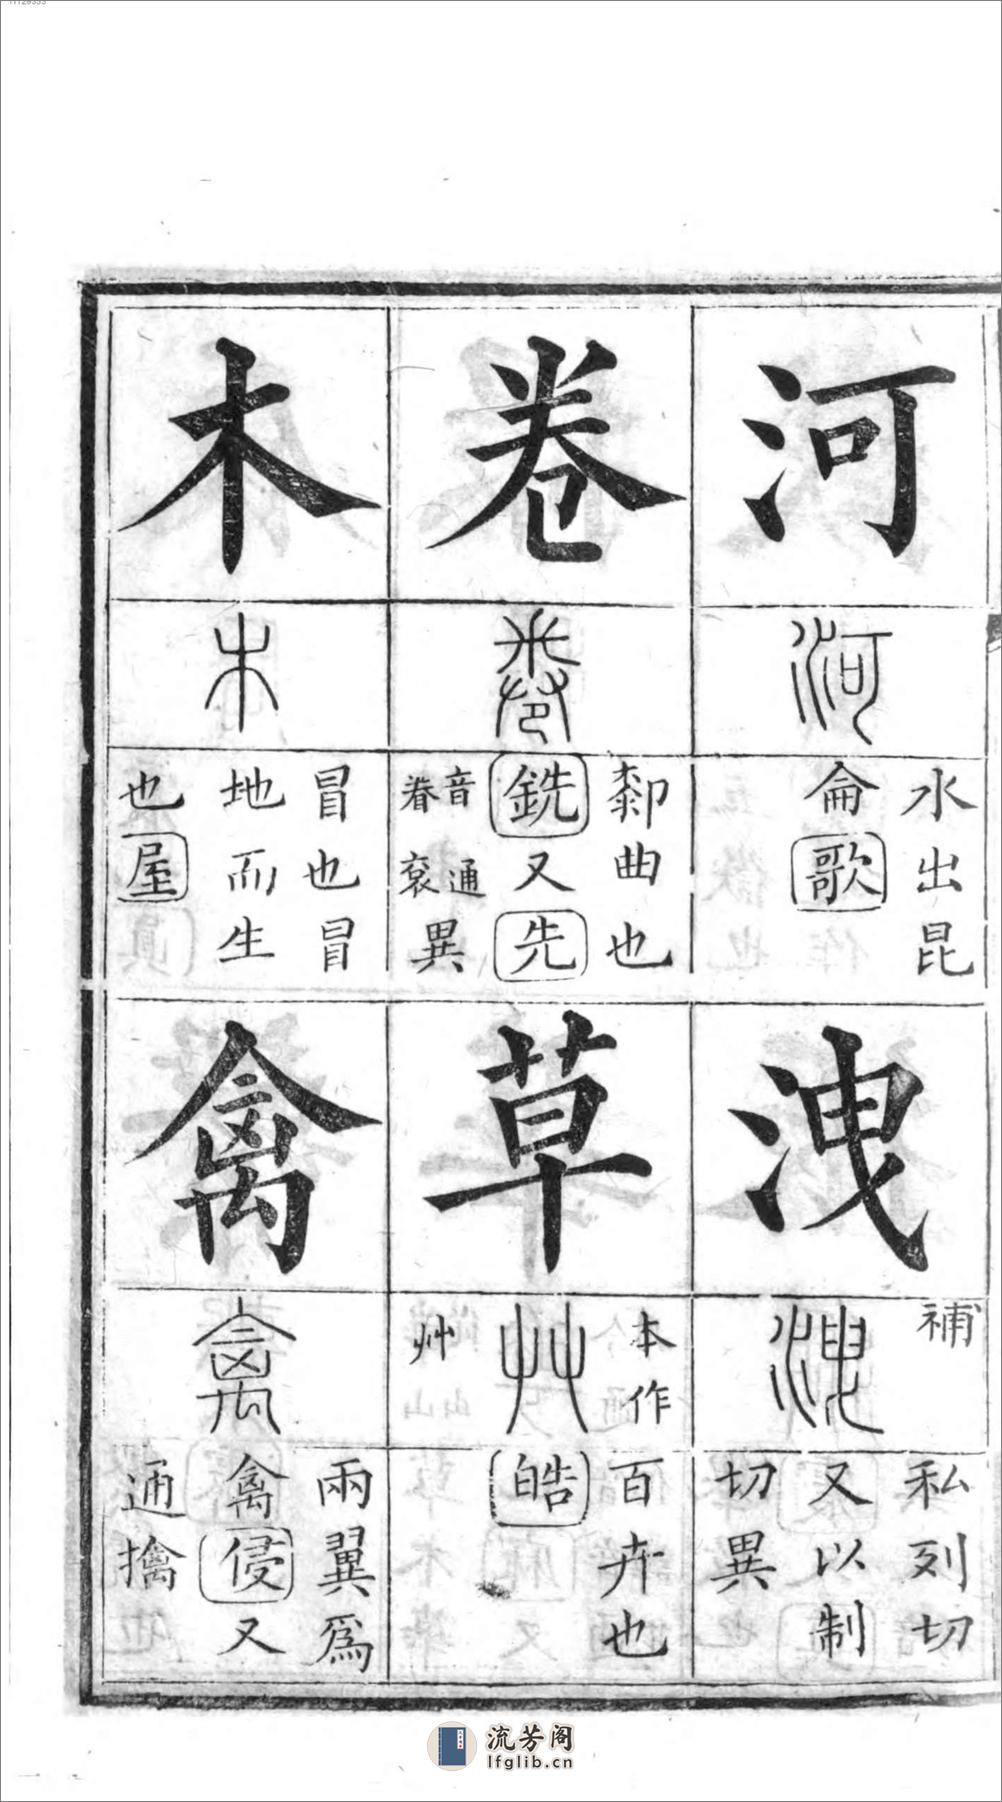 河
水出昆
侖歌
洩
補
私列切
又以制
切異
卷
厀曲也
銑又先
音眷通袞異
草
本作
艸
百卉也
皓
木
冒也冒
地而生
也屋
禽
兩翼爲
禽侵又
通擒
流芳阁
lfglib.cn